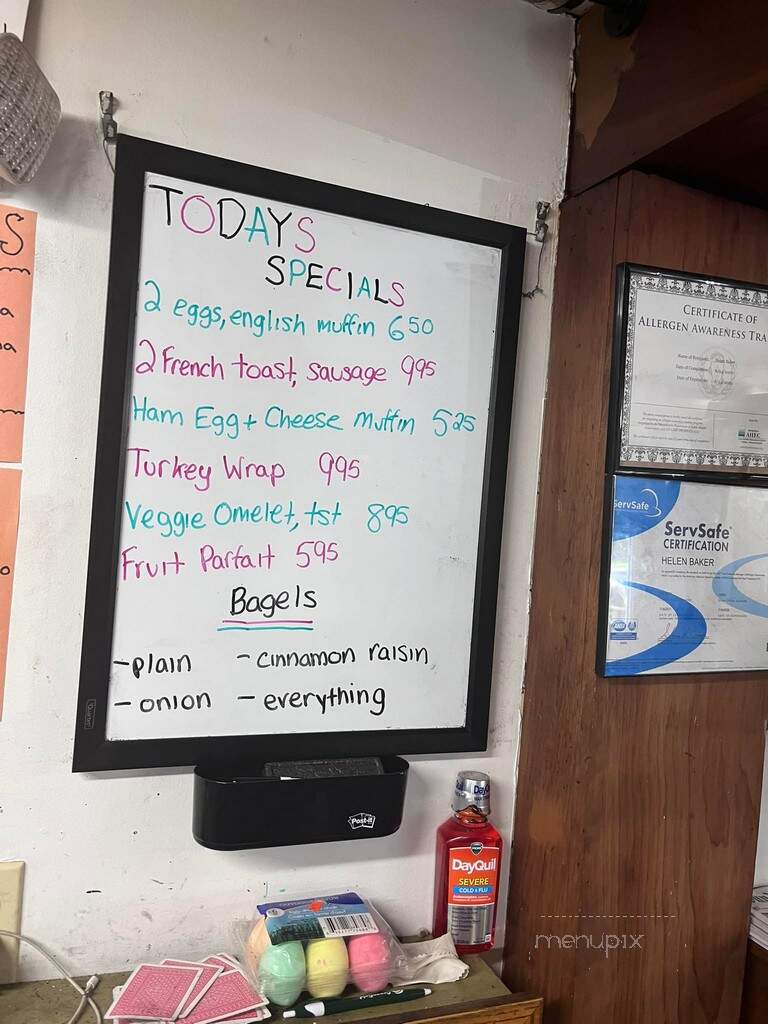 TODAYS
SPECIALS
2 eggs, english muffin 650
2 French toast, sausage 995
Ham Egg + Cheese Muffin 525
Turkey Wrap 995
Veggie Omelet, tst 895
Fruit Parfait 595
Bagels
-plain - cinnamon raisin
- onion - everything
Post-it
DayQuil
SEVERE
COLD & FLU
S
CERTIFICATE OF
ALLERGEN AWARENESS TRA
ServSafe
ServSafe
CERTIFICATION
HELEN BAKER
menupix